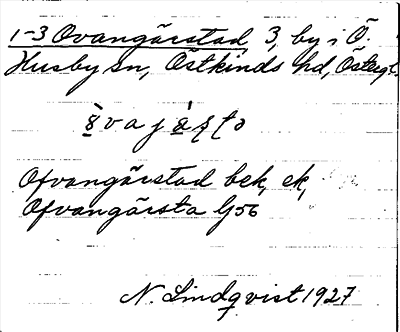 1-3 Ovangärstad, 3, by i Ö.
Husby sn, Östkinds hd, Östergl.
Ofvangärstad bek, ek,
Ofvangärsta Gs6
N. Lindqvist 1927